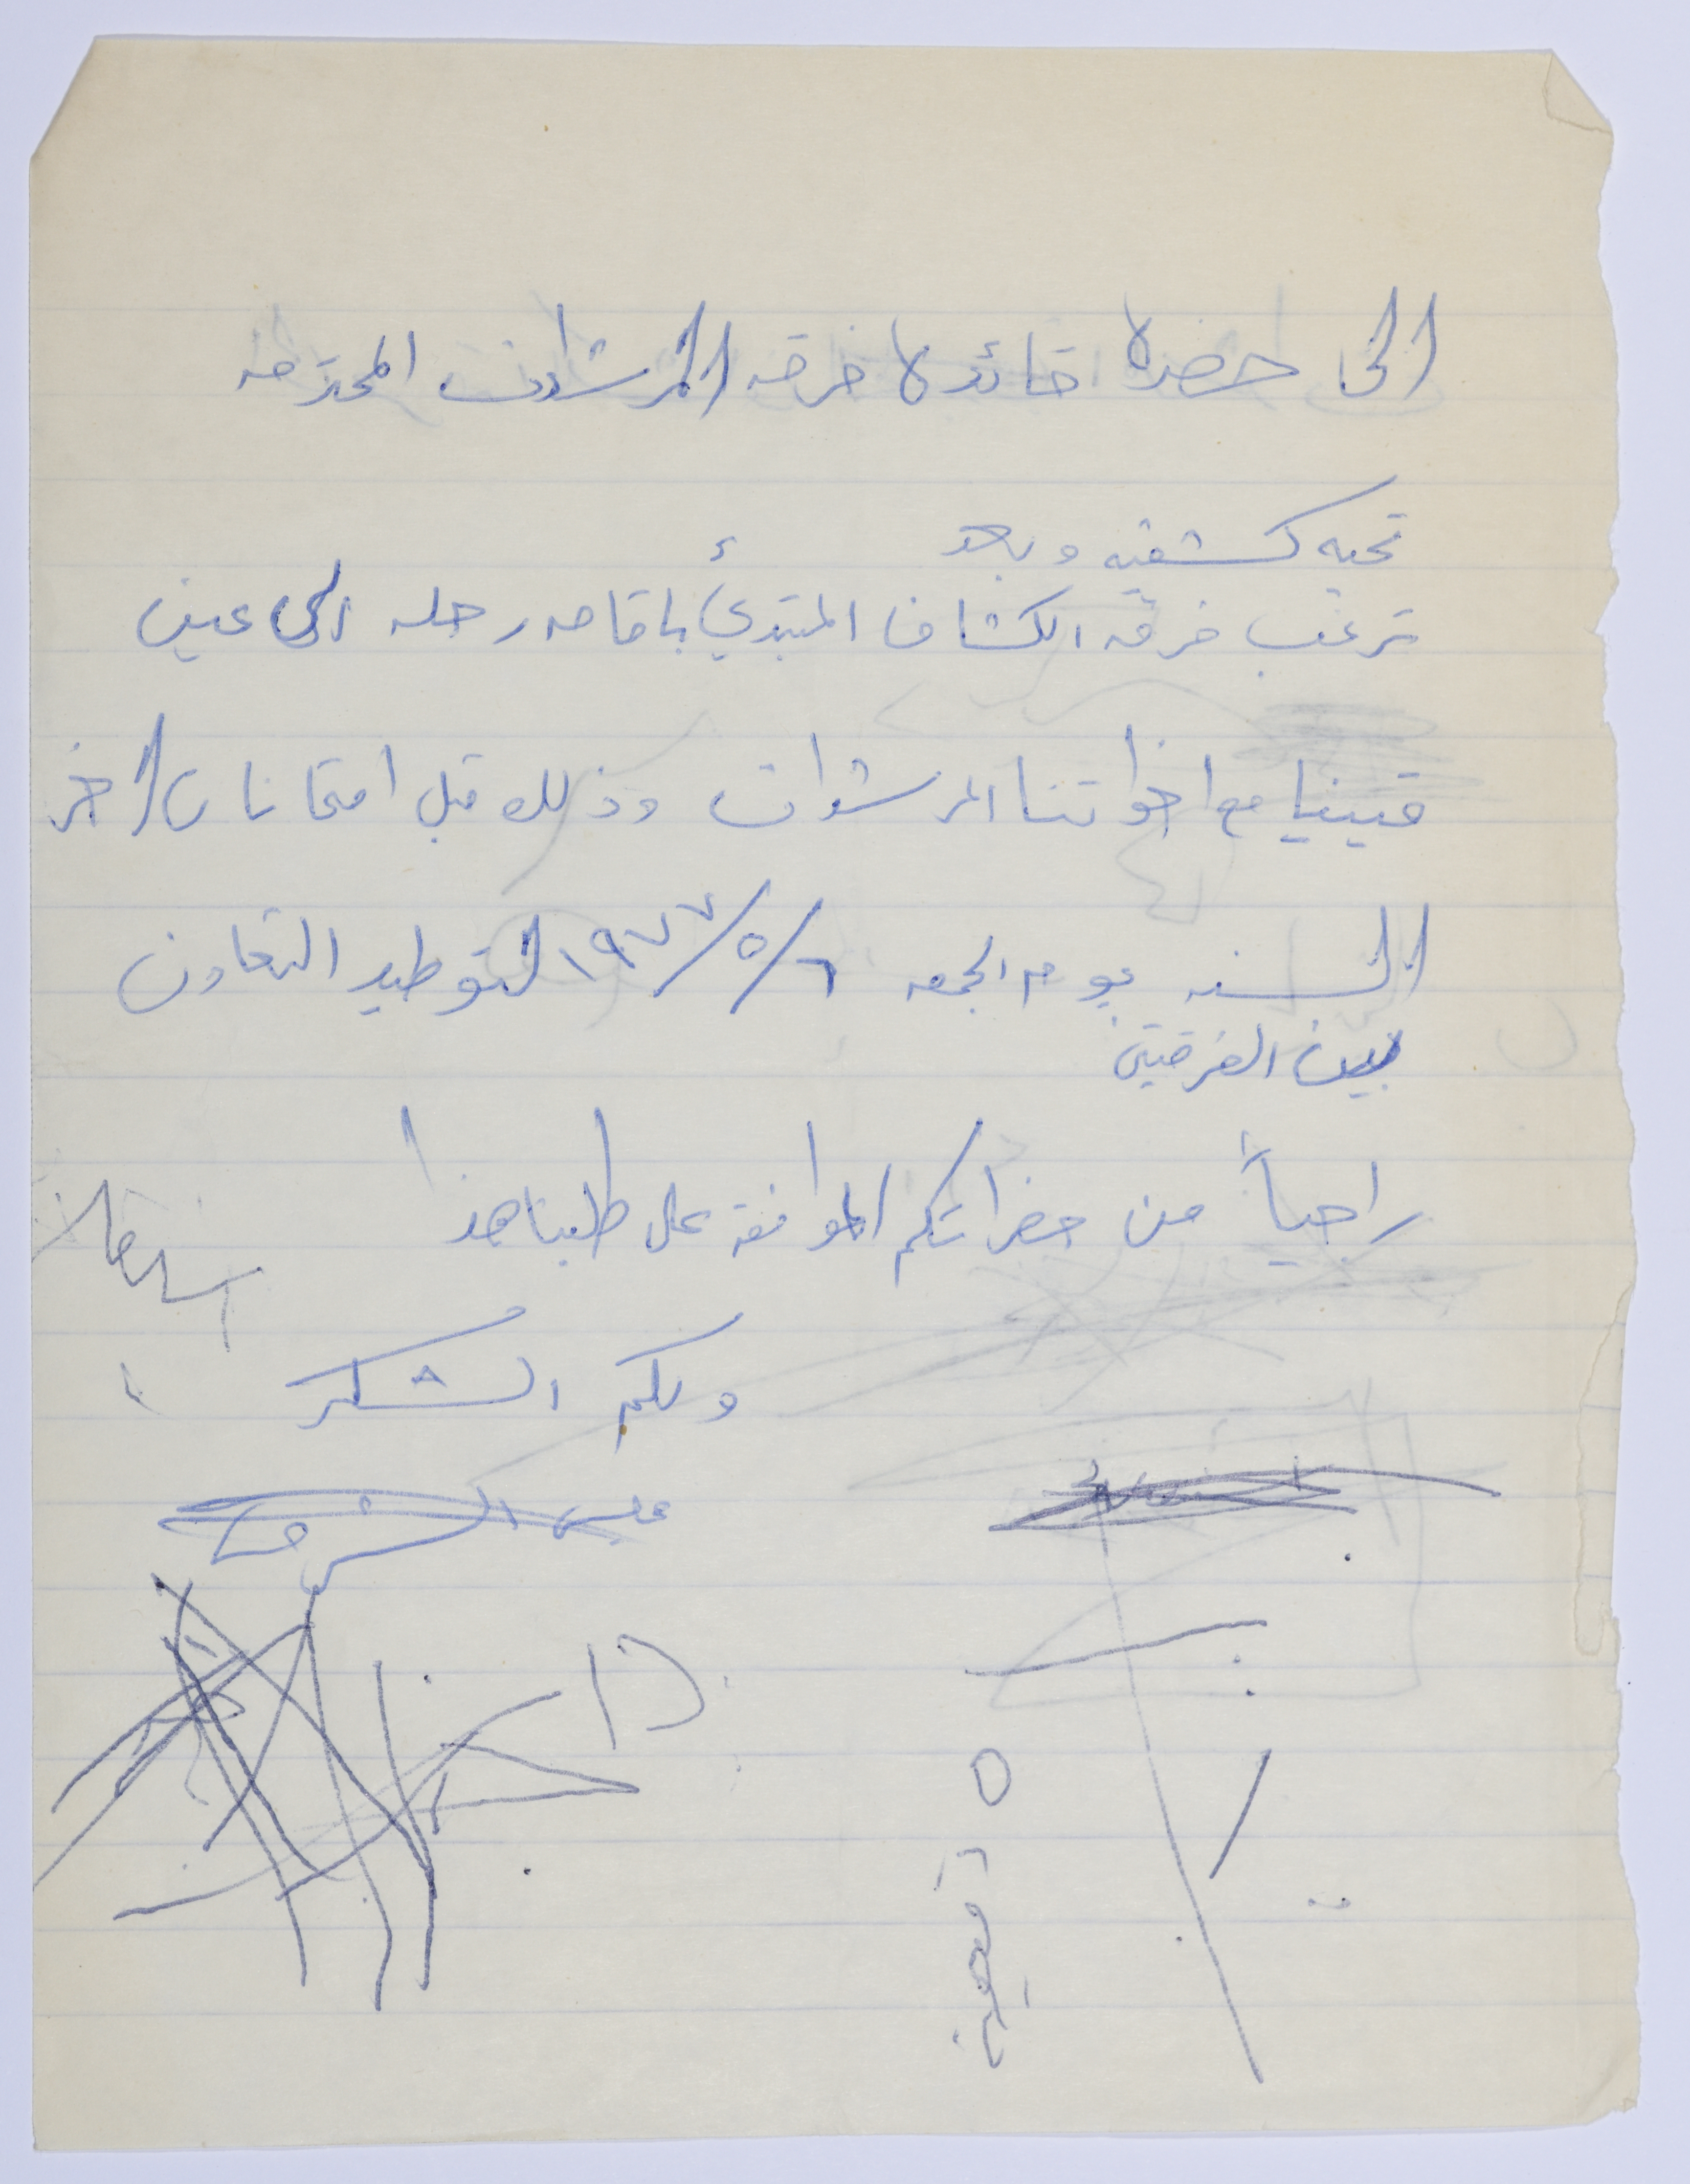 الى حضرة قائدة فرقه المرشدات المحترمه
تحيه كشفيه وبعد
ترغب فرقه الكشاف المبتدئ باقامه رحله الى عين
قينيا مع اخواتنا المرشدات وذلك قبل امتحانات اخر
السنه يوم الجمعه ٦/٥/١٩٧٧ لتوطيد التعاون
بين الفرقتين
راجياً من حضراتكم الموافقه على طلبنا هذا
ولكم الشكر